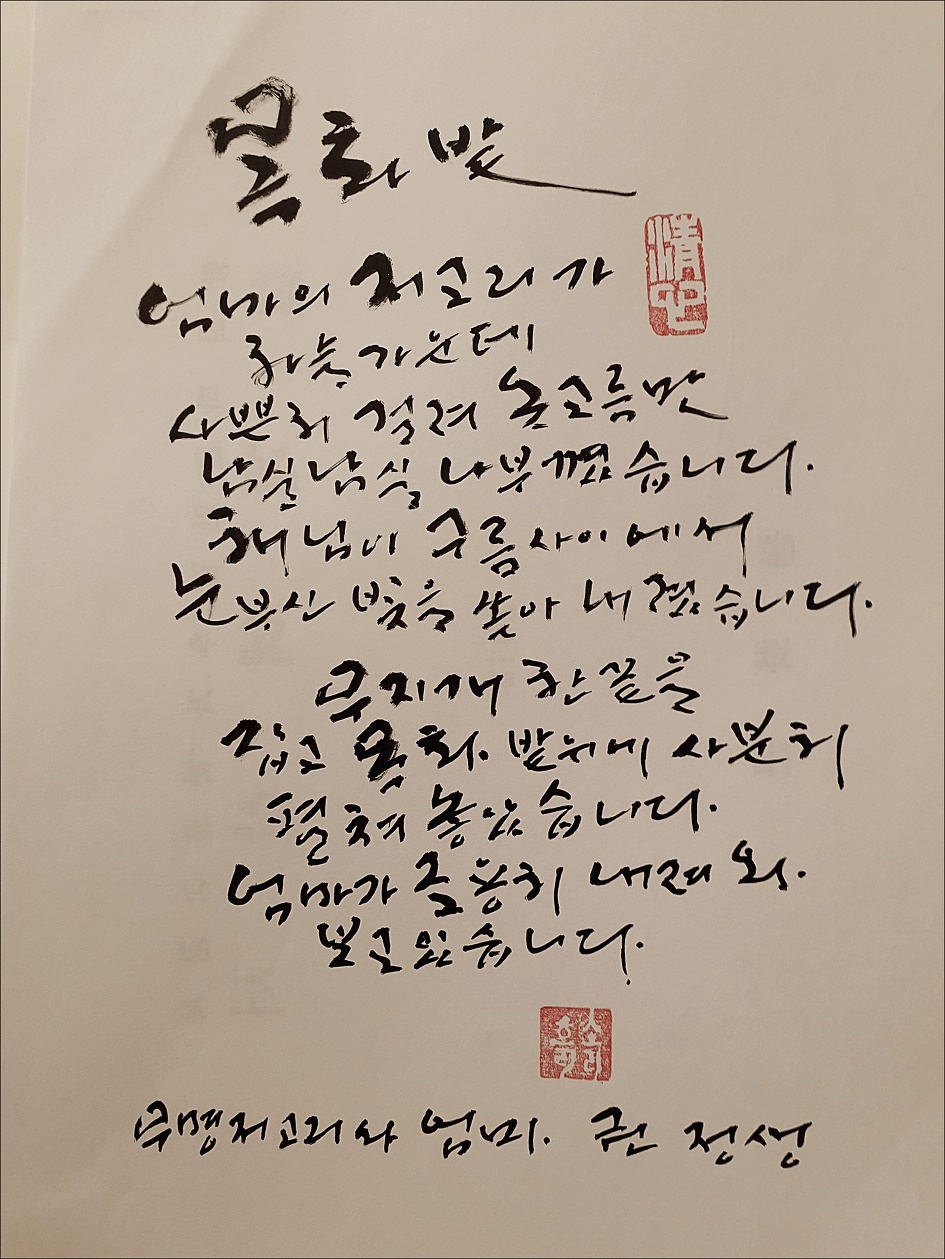 목화밭
情
엄마의 저고리가
하늘 가운데
사뿐히 걸려 옷고름만
남실남실 나부꼈습니다.
해님이 구름 사이에서
눈부신 빛을 쏟아 내렸습니다.
무지개 한끝을
잡고 목화 밭위에 사뿐히
펼쳐 놓았습니다.
엄마가 조용히 내려와.
보고 있습니다.
소리
무명저고리와 엄마. 권정생